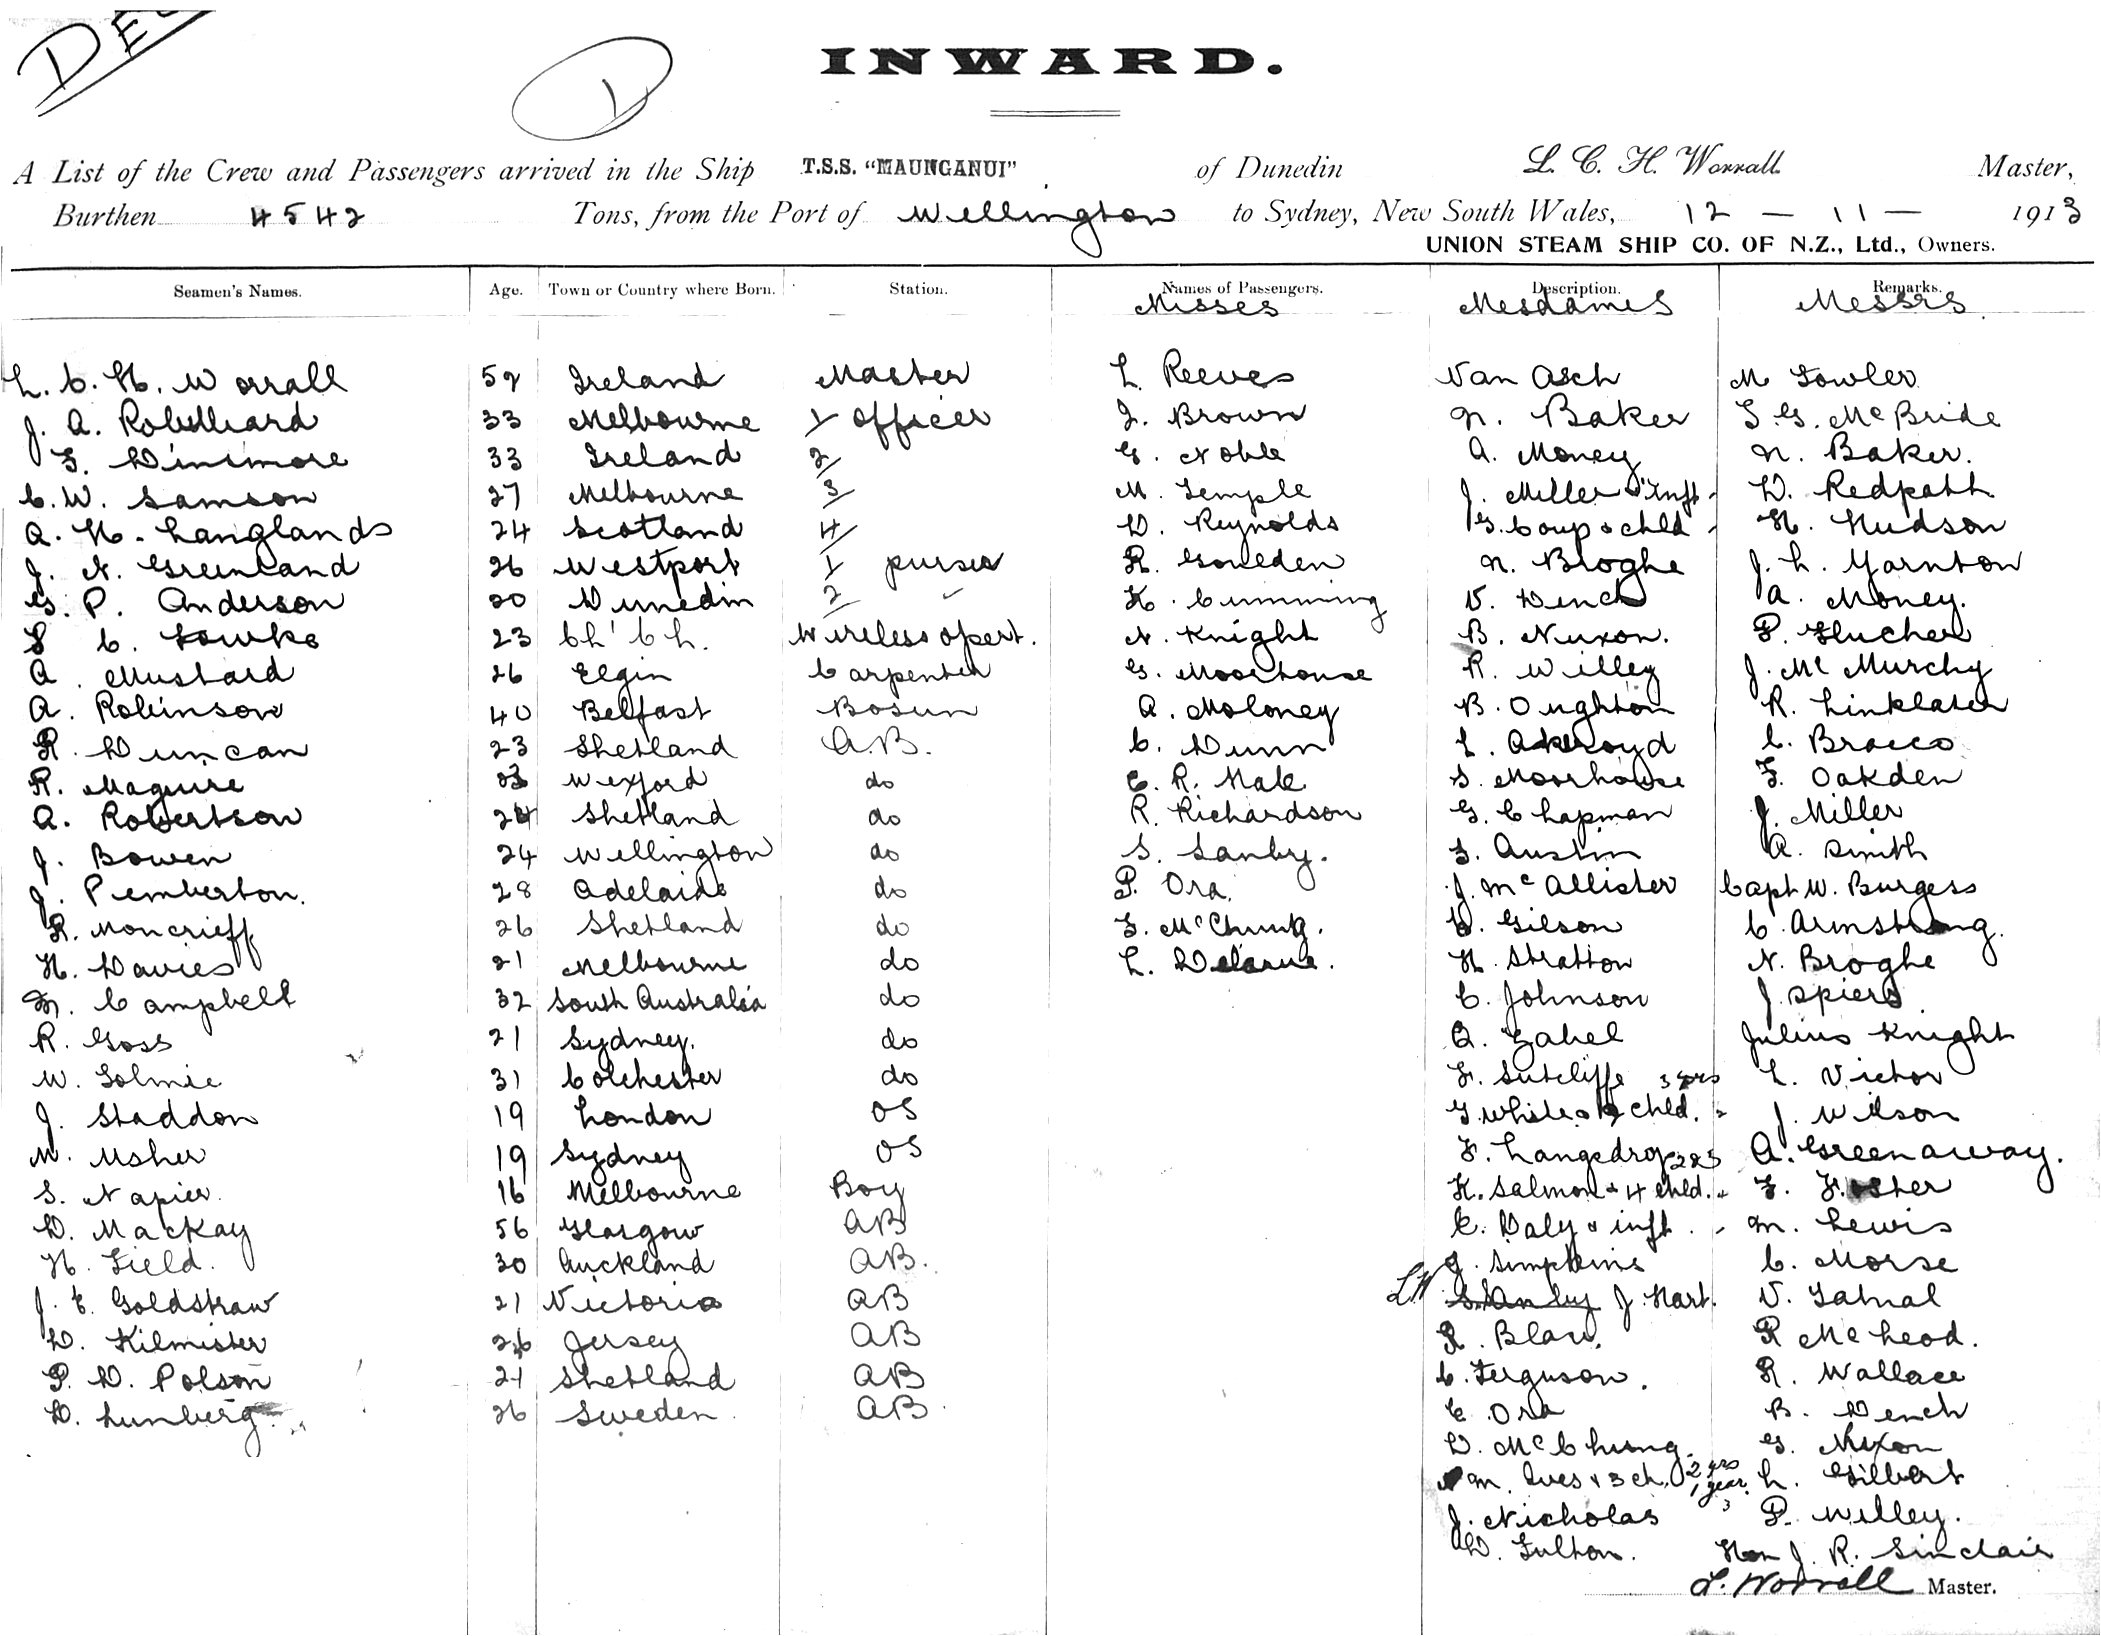 DE
1
INWARD.
A List of the Crew and Passengers arrived in the Ship T.S.S. "MAUNGANUI" of Dunedin L. C. H. Worrall Master,
Burthen 4542 Tons, from the Port of Wellington to Sydney, New South Wales, 12 – 11 – 1913
UNION STEAM SHIP CO. OF N.Z., Ltd., Owners.
Seamen's Names. Age. Town or Country where Born. Station. Names of Passengers. Description. Remarks.
Misses Mesdames Messrs
L. C. H. Worrall 52 Ireland Master L Reeves Van Asch M Fowler
J. A. Robilliard 33 Melbourne 1/ officer J. Brown N. Baker T. G. McBride
F. Dinsmore 33 Ireland 2/ G. Noble A. Money N. Baker.
C. W. Samson 27 Melbourne 3/ M. Temple J. Miller & Inft - D. Redpath
A. H. Langlands 24 Scotland 4/ D. Reynolds G. Coup & chld - H. Hudson
J. N. Greenland 26 Westport 1/ purser R. Goulden N. Broghe J. L. Yarnton
G. P. Anderson 20 Dunedin 2/ – K. Cumming V. Dench A. Money.
S C. Fowke 23 Ch' Ch. Wireless opert. N. Knight B. Nuxon. P. Flucher
A. Mustard 26 Elgin Carpenter G. Moorhouse R. Willey J. Mc Murchy
A. Robinson 40 Belfast Bosun A. Moloney B. Oughton R. Linklater
R. Duncan 23 Shetland A.B. C. Dunn L. Akroyd C. Bracco
R. Maguire Wexford do C. R. Male S. Moorhouse F. Oakden
A. Robertson 24 Shetland do R. Richardson G. Chapman J. Miller
J. Bowen 24 Wellington do S. Sanby. F. Austin A. Smith
J. Pemberton. 28 Adelaide do P. Ora. J. McAllister Capt W. Burgess
R. Moncrieff 26 Shetland do F. McChung. C. Gilson C. Armstrong.
H. Davies 21 Melbourne do L. Delarue. H. Stratton N. Broghe
M. Campbell 32 South Australia do C. Johnson J. Spiers
R. Goss 21 Sydney. do A. Zabel Julius Knight
W. Tolmie 31 Colchester do F. Sutcliffe 3 yrs L. Victor
J. Staddon 19 London OS G. White & chld. - J. Wilson
W. Usher 19 Sydney OS F. Langedrog A. Greenaway.
S. Napier. 16 Melbourne Boy K. Salmon & 4 chld. - F. Fisher
D. MacKay 56 Glasgow AB C. Daly & inft. - M. Lewis
H. Field. 30 Auckland AB. J. Simpkins C. Morse
J. E. Goldstraw 21 Victoria AB LW S. Anby J. Hart. V. Tatnal
D. Kilmister 26 Jersey AB R. Blau. R McLeod.
P. D. Polson 21 Shetland AB C. Ferguson. R. Wallace
D. Lunberg 26 Sweden. AB. E. Ora B. Dench
D. McChung. G. Nixon
M. Ives & 3 ch. 2 yrs 1 year 3 L. Gilbert
J. Nicholas P. Willey.
D. Fulton. Hon J. R. Sinclair
L. Worrall Master.